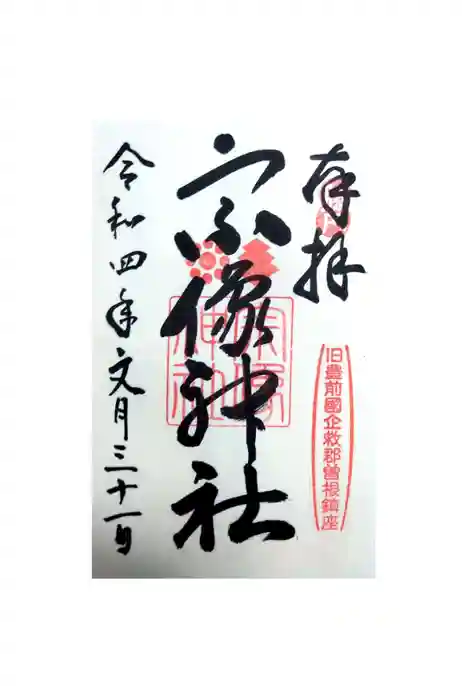 奉拝
旧豊前國企救郡曽根鎮座
宗像神社
宗像神社
令和四年文月三十一日